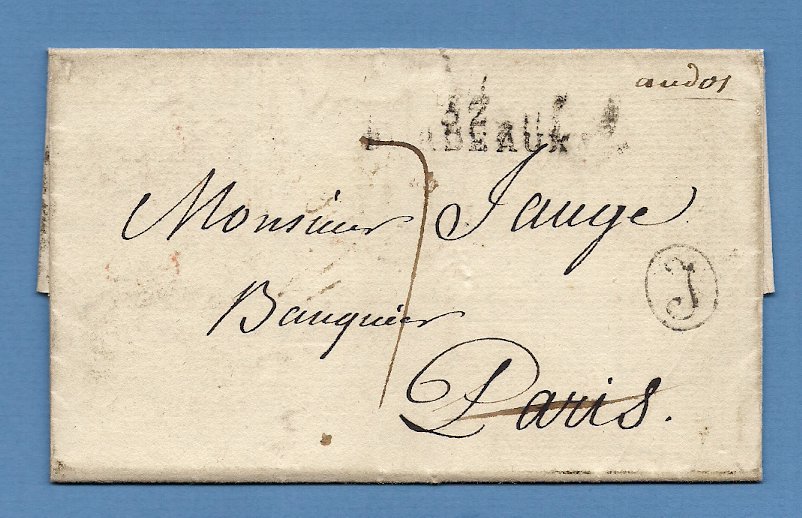 au dos
32
BORDEAUX
Monsieur Jauge
J
Banquier
7
Paris.